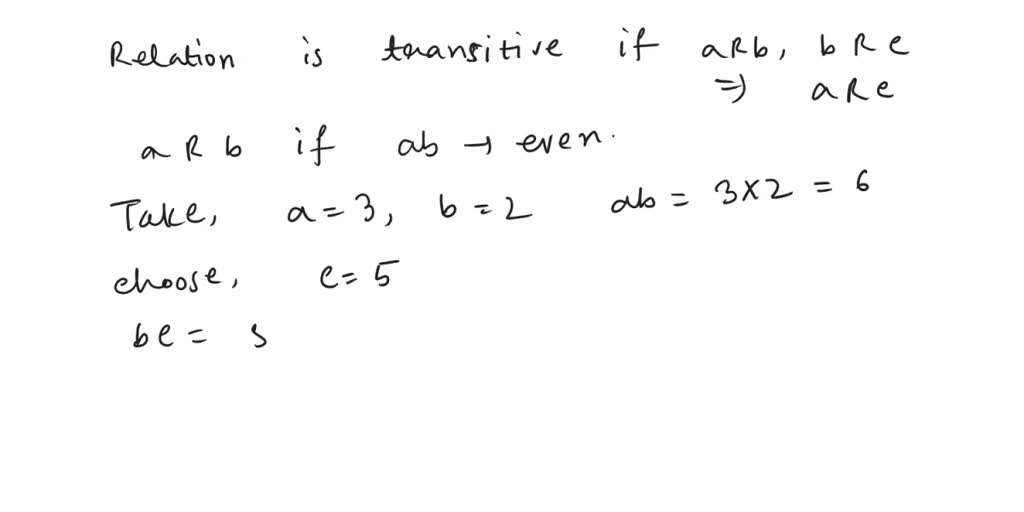 Relation is transitive if aRb, bRc
⇒ aRc
aRb if ab → even.
Take, a = 3, b = 2 ab = 3×2 = 6
choose, c = 5
bc = s